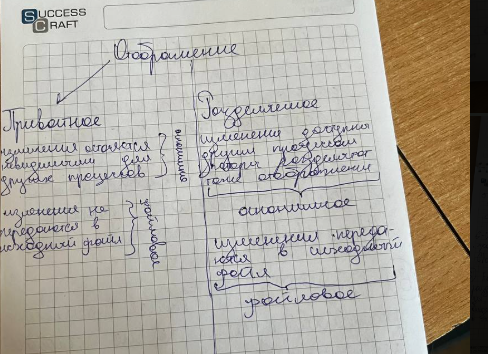 SUCCESS
CRAFT
Отображение
Приватное
изменения остаются
невидимыми для
других процессов
анонимное
изменения не
передаются в
исходный файл
файловое
Разделяемое
изменения доступны
другим процессам
которые разделяют
тоже отображение
анонимное
изменения переда-
ются в исходный
файл
файловое